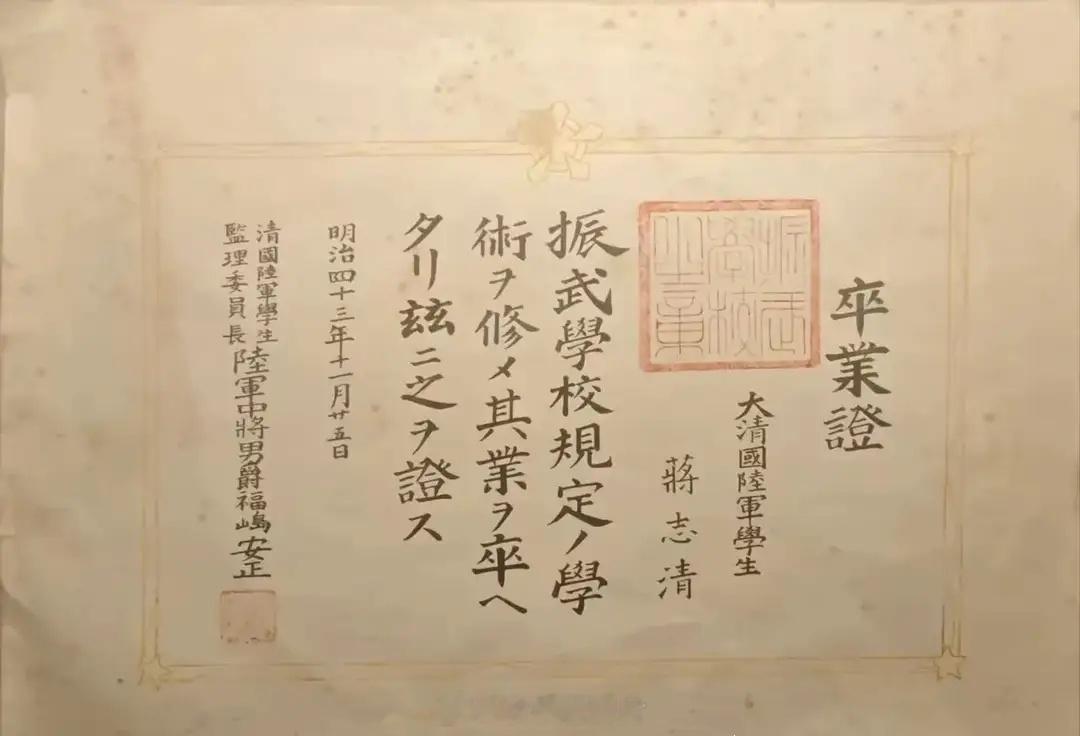 卒業證
大清國陸軍學生
蔣志清
振武學校之章
振武學校規定ノ學
術ヲ修メ其業ヲ卒ヘ
タリ玆ニ之ヲ證ス
明治四十三年十一月廿五日
清國陸軍學生
監理委員長
陸軍中將男爵福嶋安正